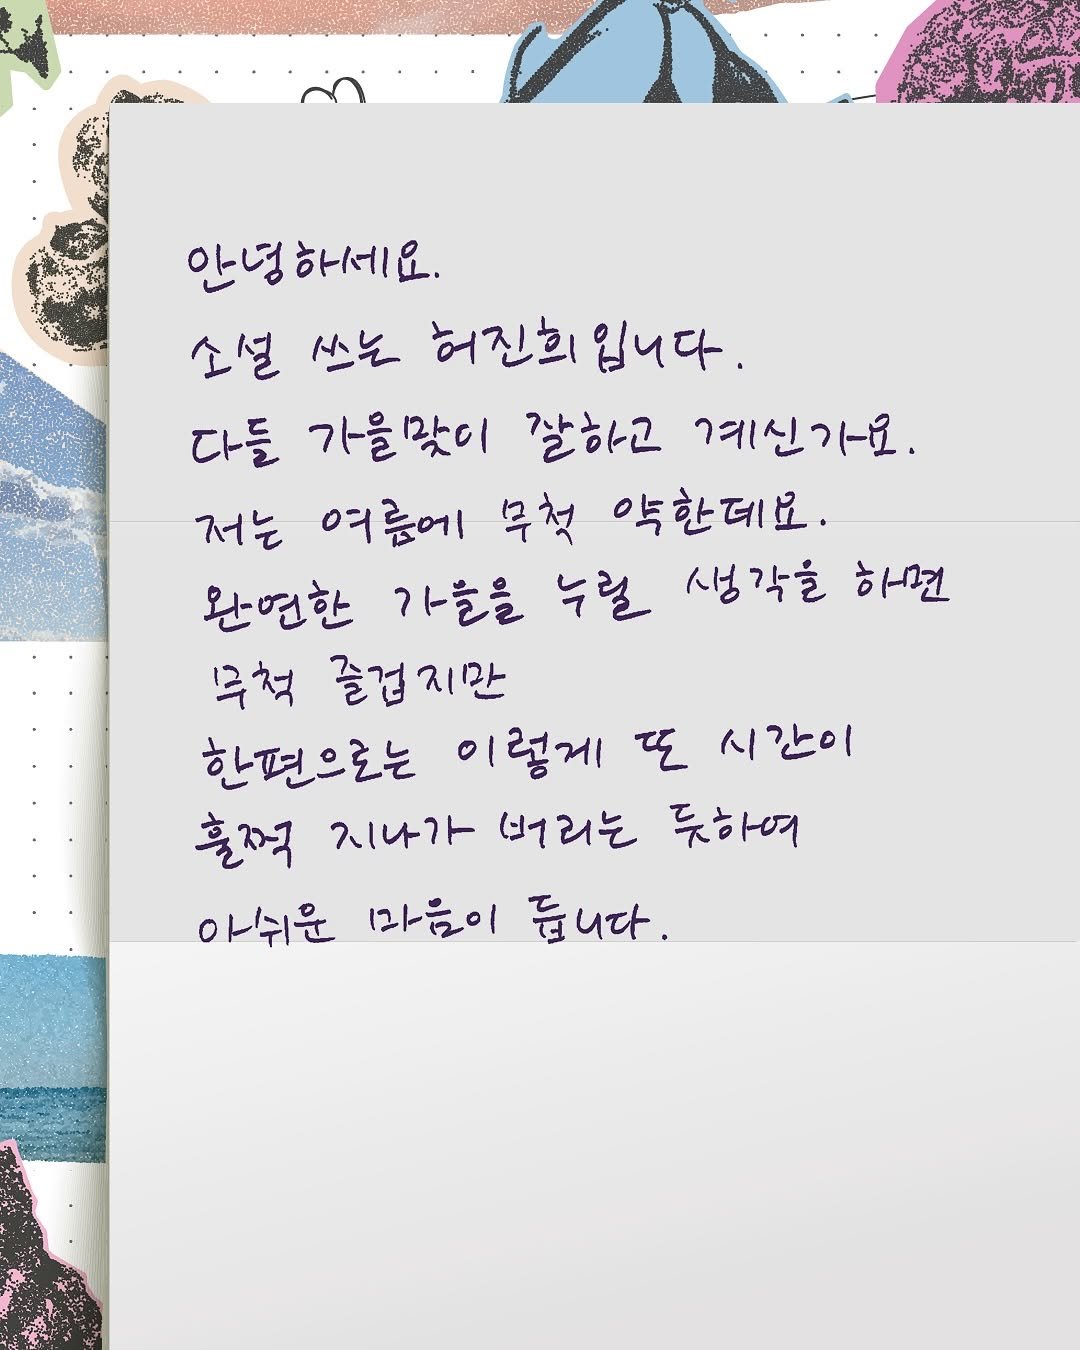 안녕하세요.
소설 쓰는 허진희입니다.
다들 가을맞이 잘하고 계신가요.
저는 여름에 무척 약한데요.
완연한 가을을 누릴 생각을 하면
무척 즐겁지만
한편으로는 이렇게 또 시간이
훌쩍 지나가 버리는 듯하여
아쉬운 마음이 듭니다.